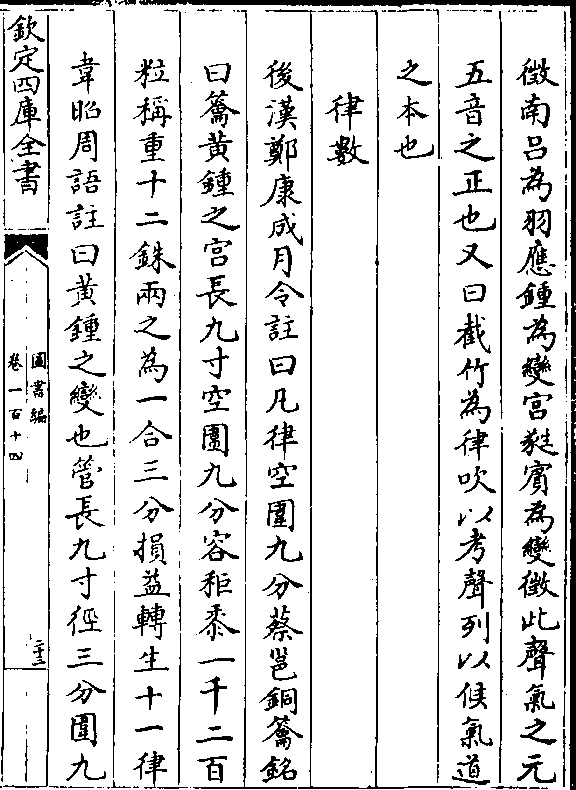 徵南呂為羽應鍾為變宮蕤賓為變徵此聲氣之元
五音之正也又曰截竹為律吹以考聲列以候氣道
之本也
律數
後漢鄭康成月令註曰凡律空圍九分蔡邕銅龠銘
曰龠黃鍾之宮長九寸空圍九分容秬黍一千二百
粒稱重十二銖兩之為一合三分損益轉生十一律
韋昭周語註曰黃鍾之變也管長九寸徑三分圍九
欽定四庫全書
圖書編
卷一百十四
二十三